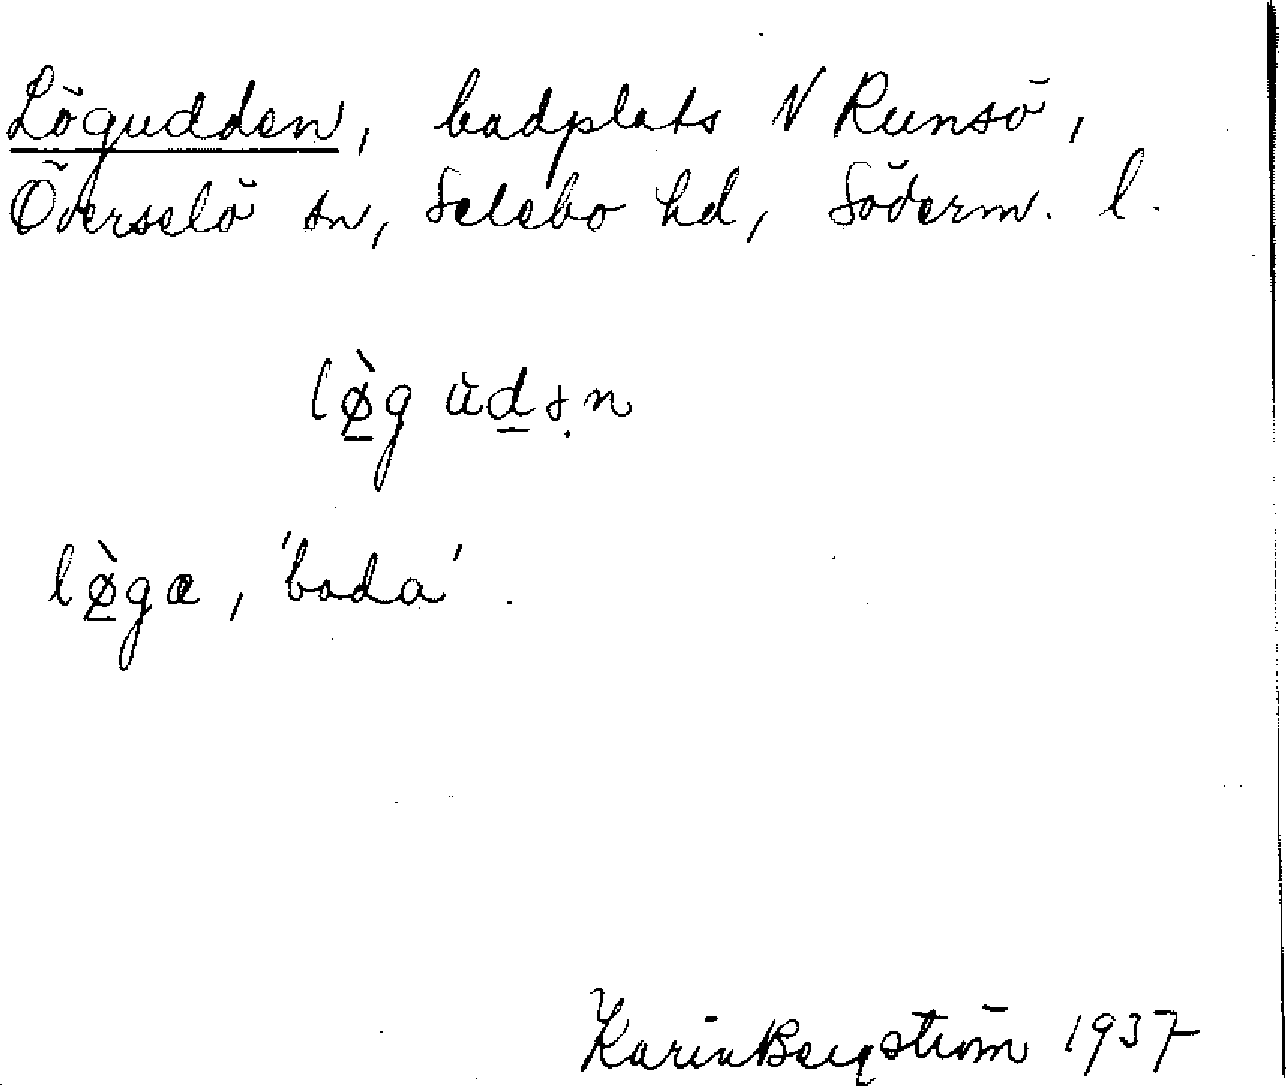 Lögudden, badplats N Runsö,
Överselö sn, Selebo hd, Söderm. l.
lø̀g ùdən
lø̀ga, 'bada'.
Karin Bergström 1937